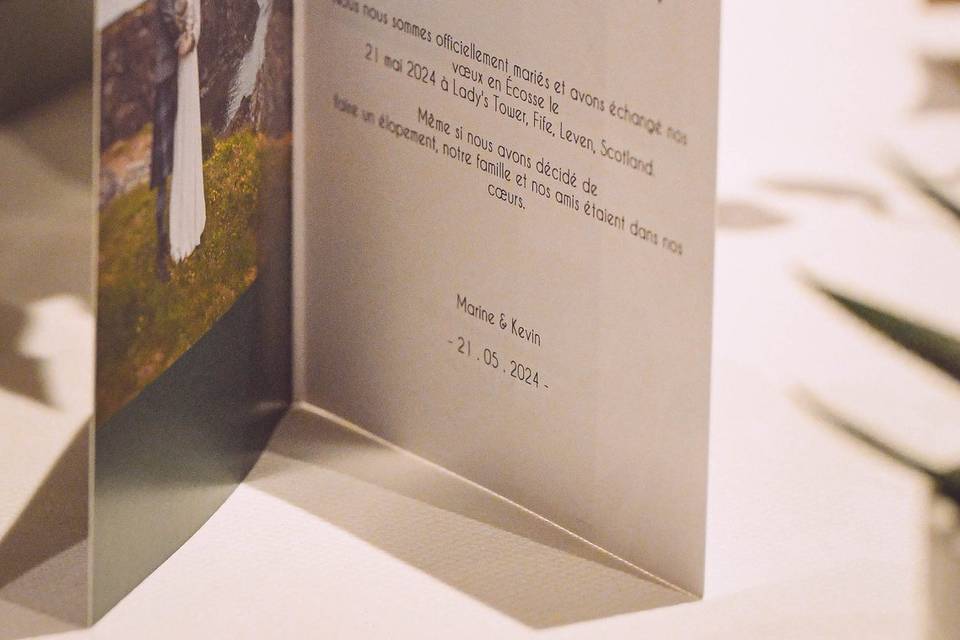 Nous nous sommes officiellement mariés et avons échangé nos
vœux en Écosse le
21 mai 2024 à Lady's Tower, Fife, Leven, Scotland.
Même si nous avons décidé de
faire un élopement, notre famille et nos amis étaient dans nos
cœurs.
Marine & Kevin
- 21 . 05 . 2024 -